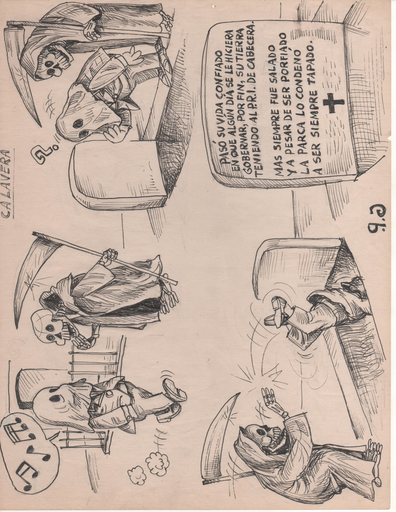 CALAVERA
?
PASÓ SU VIDA CONFIADO
EN QUE ALGÚN DÍA SE LE HICIERA
GOBERNAR, POR FIN, SU TIERRA
TENIENDO AL P.R.I. DE CABECERA.
MAS SIEMPRE FUE SALADO
Y A PESAR DE SER PORFIADO
LA PARCA LO CONDENO
A SER SIEMPRE TAPADO.